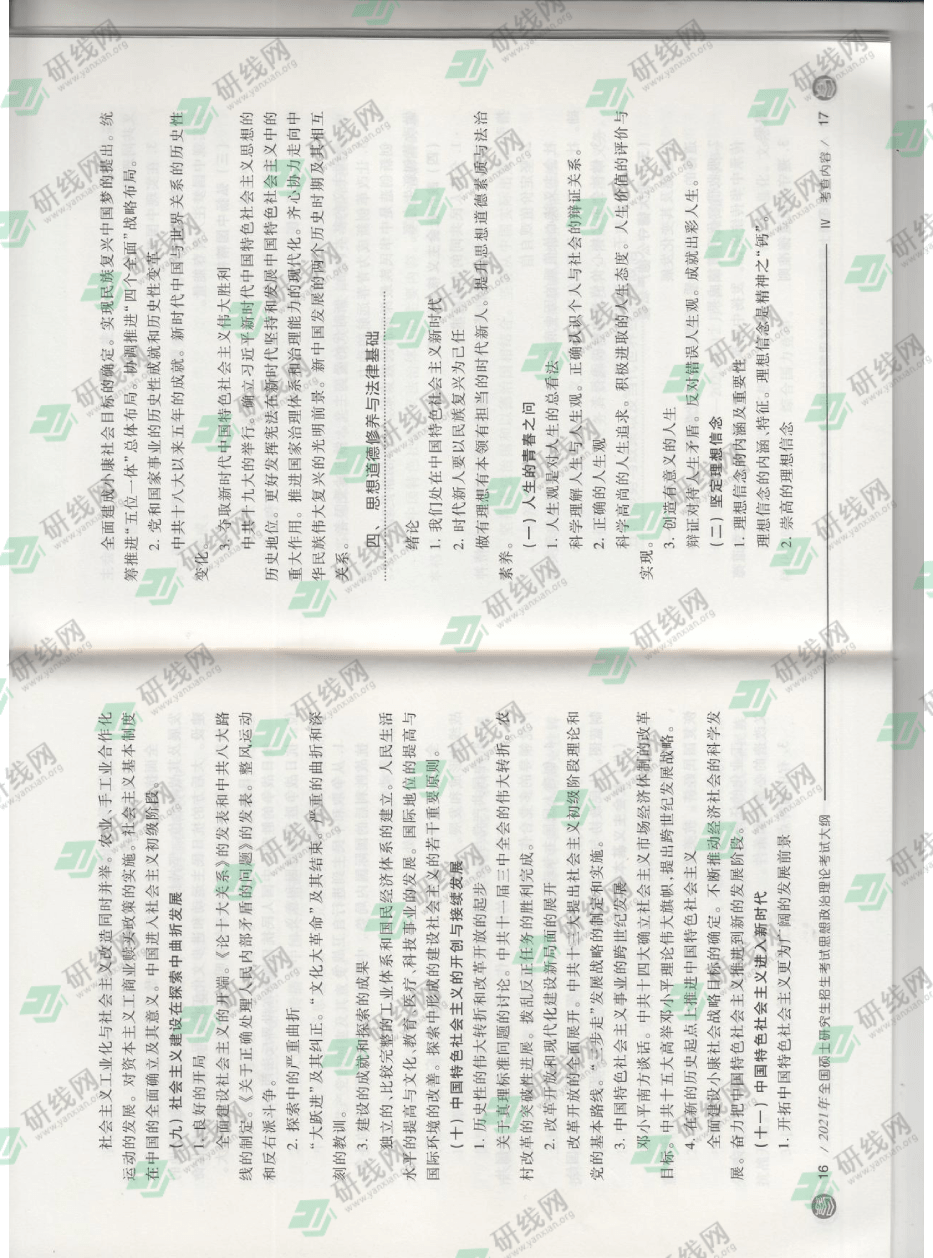 社会主义工业化与社会主义改造同时并举。农业、手工业合作化
运动的发展。对资本主义工商业赎买政策的实施。社会主义基本制度
在中国的全面确立及其意义。中国进入社会主义初级阶段。
(九)社会主义建设在探索中曲折发展
1. 良好的开局
全面建设社会主义的开端。《论十大关系》的发表和中共八大路
线的制定。《关于正确处理人民内部矛盾的问题》的发表。整风运动
和反右派斗争。
2. 探索中的严重曲折
“大跃进”及其纠正。“文化大革命”及其结束。严重的曲折和深
刻的教训。
3. 建设的成就和探索的成果
独立的、比较完整的工业体系和国民经济体系的建立。人民生活
水平的提高与文化、教育、医疗、科技事业的发展。国际地位的提高与
国际环境的改善。探索中形成的建设社会主义的若干重要原则。
(十)中国特色社会主义的开创与接续发展
1. 历史性的伟大转折和改革开放的起步
关于真理标准问题的讨论。中共十一届三中全会的伟大转折。农
村改革的突破性进展。拨乱反正任务的胜利完成。
2. 改革开放和现代化建设新局面的展开
改革开放的全面展开。中共十三大提出社会主义初级阶段理论和
党的基本路线。“三步走”发展战略的制定和实施。
3. 中国特色社会主义事业的跨世纪发展
邓小平南方谈话。中共十四大确立社会主义市场经济体制的改革
目标。中共十五大高举邓小平理论伟大旗帜,提出跨世纪发展战略。
4. 在新的历史起点上推进中国特色社会主义
全面建设小康社会战略目标的确定。不断推动经济社会的科学发
展。奋力把中国特色社会主义推进到新的发展阶段。
(十一)中国特色社会主义进入新时代
1. 开拓中国特色社会主义更为广阔的发展前景
16 / 2021年全国硕士研究生招生考试思想政治理论考试大纲
全面建成小康社会目标的确定。实现民族复兴中国梦的提出。统
筹推进“五位一体”总体布局。协调推进“四个全面”战略布局。
2. 党和国家事业的历史性成就和历史性变革
中共十八大以来五年的成就。新时代中国与世界关系的历史性
变化。
3. 夺取新时代中国特色社会主义伟大胜利
中共十九大的举行。确立习近平新时代中国特色社会主义思想的
历史地位。更好发挥宪法在新时代坚持和发展中国特色社会主义中的
重大作用。推进国家治理体系和治理能力的现代化。齐心协力走向中
华民族伟大复兴的光明前景。新中国发展的两个历史时期及其相互
关系。
四、思想道德修养与法律基础
绪论
1. 我们处在中国特色社会主义新时代
2. 时代新人要以民族复兴为己任
做有理想有本领有担当的时代新人。提升思想道德素质与法治
素养。
(一)人生的青春之问
1. 人生观是对人生的总看法
科学理解人生与人生观。正确认识个人与社会的辩证关系。
2. 正确的人生观
科学高尚的人生追求。积极进取的人生态度。人生价值的评价与
实现。
3. 创造有意义的人生
辩证对待人生矛盾。反对错误人生观。成就出彩人生。
(二)坚定理想信念
1. 理想信念的内涵及重要性
理想信念的内涵、特征。理想信念是精神之“钙”。
2. 崇高的理想信念
Ⅳ 考查内容 / 17
研线网
www.yanxian.org